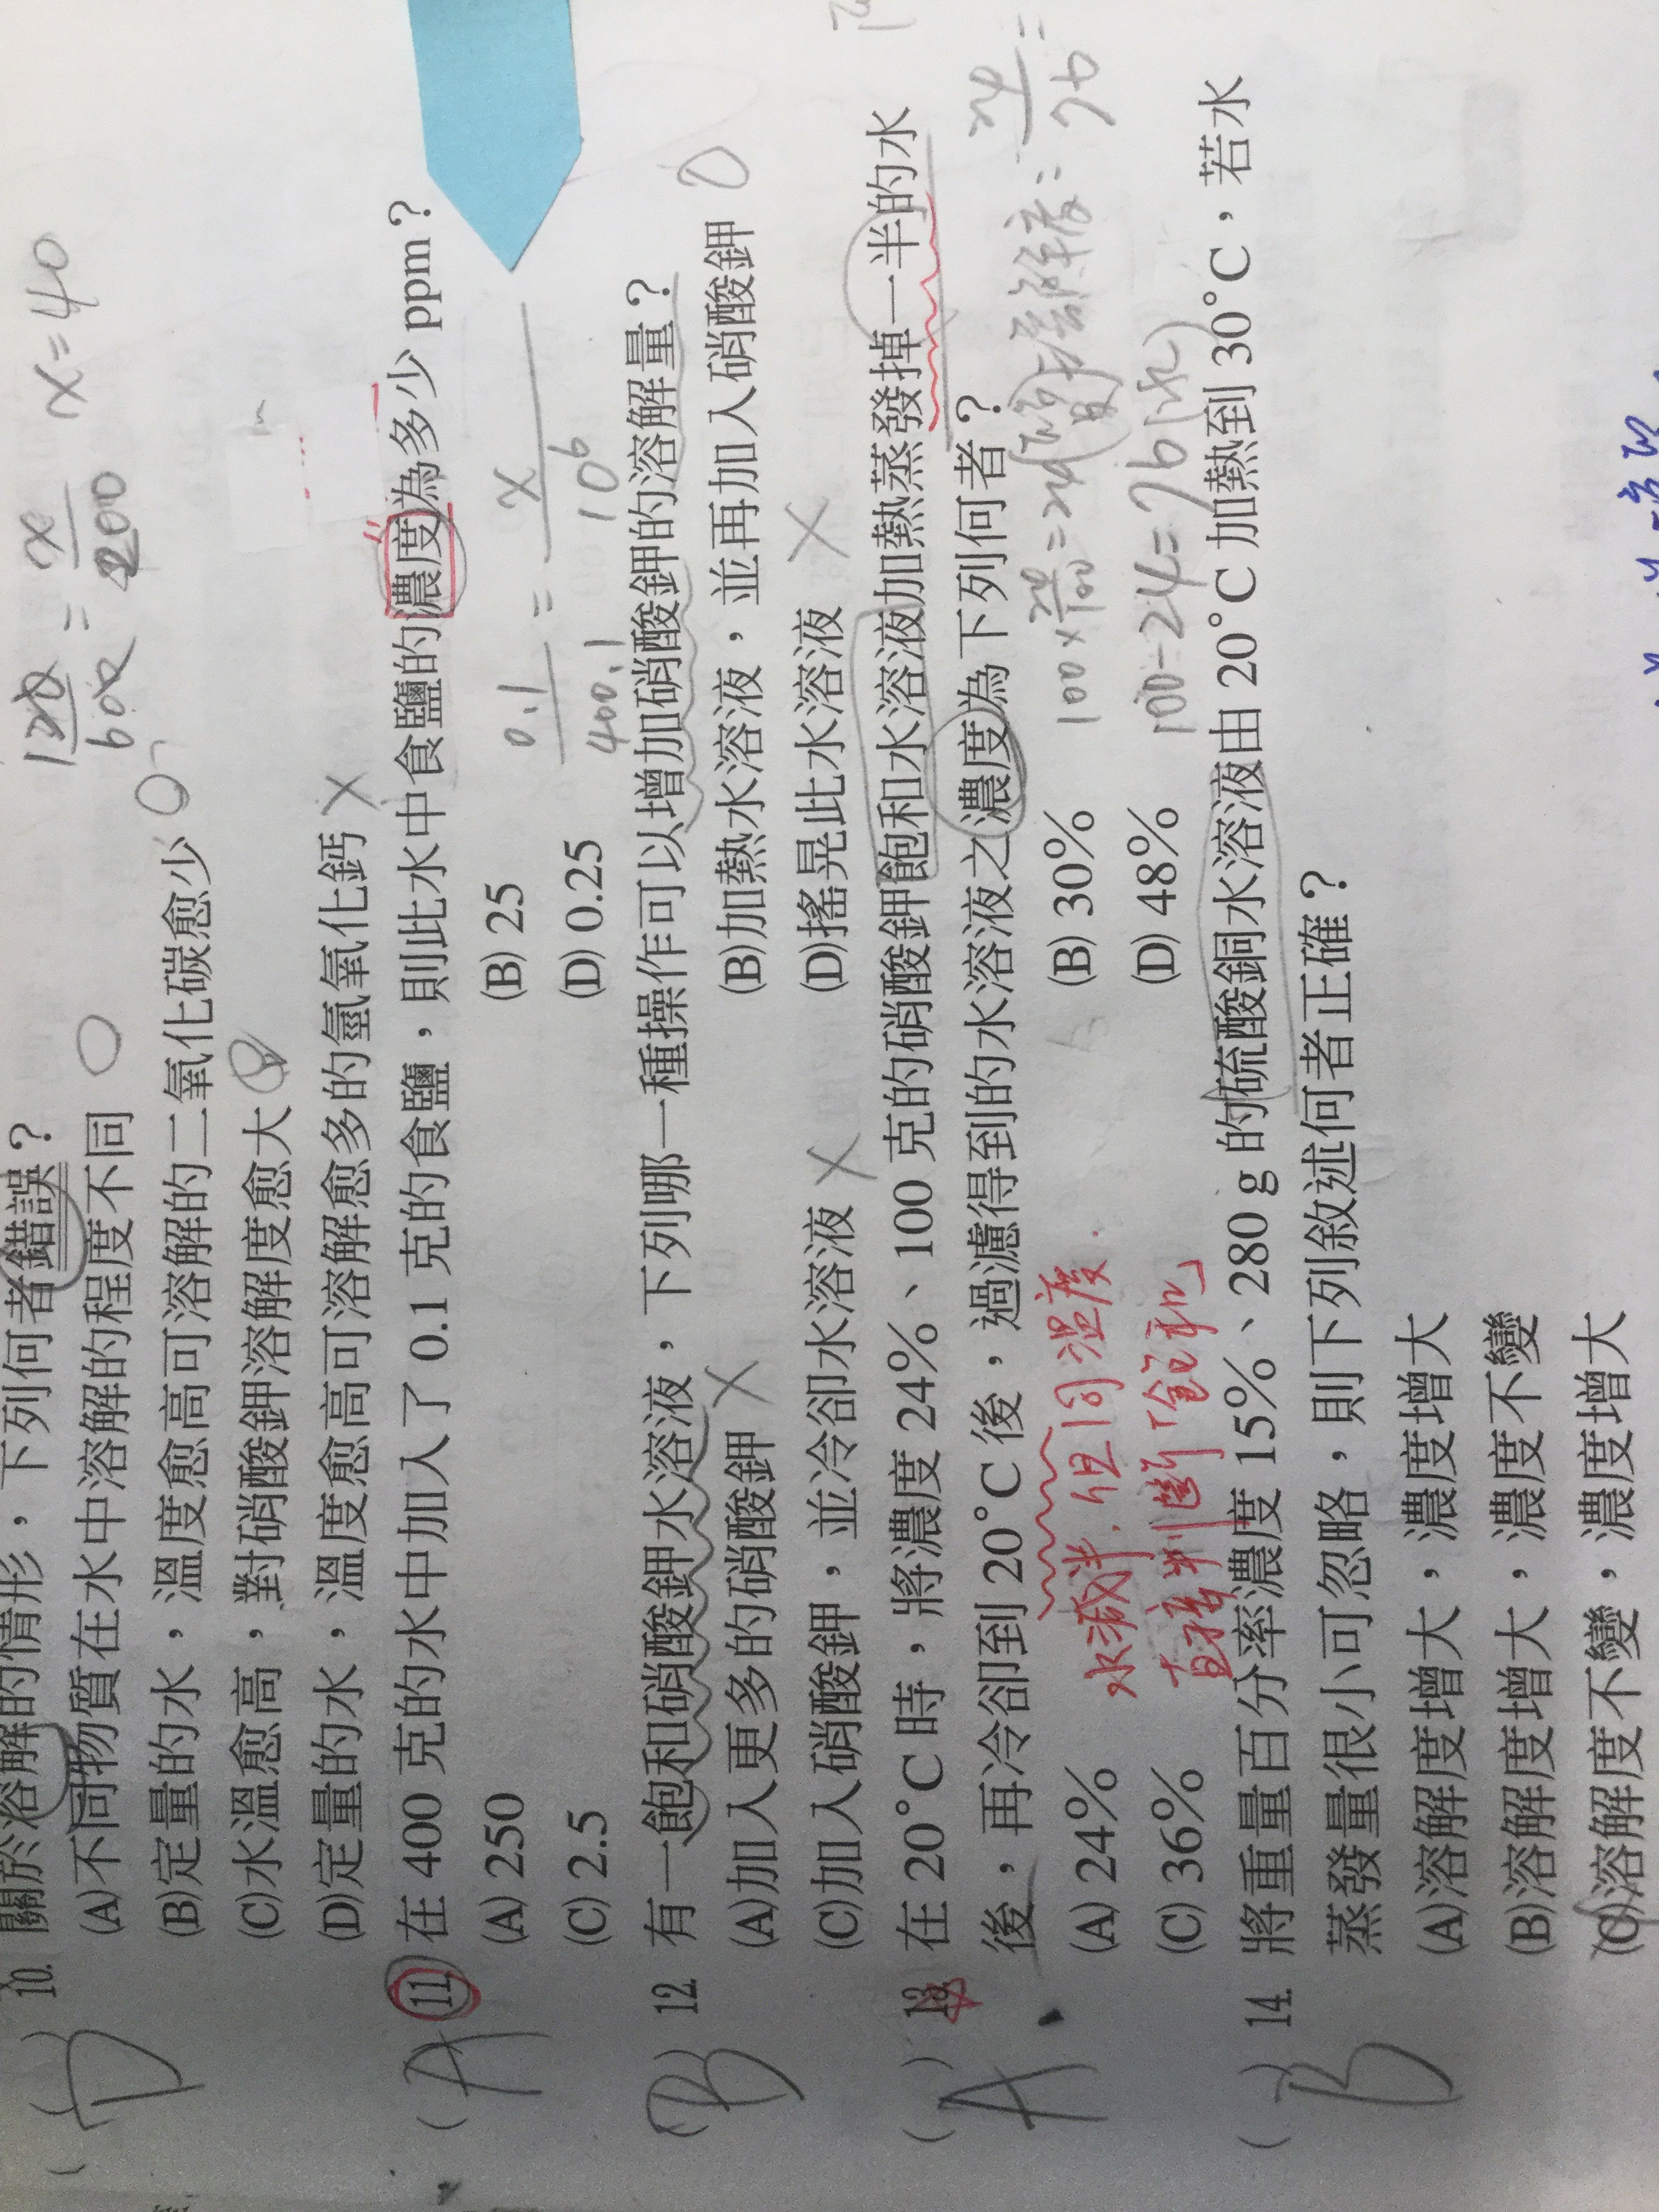 120/600 = x/200 x=40
( D ) 10. 關於溶解的情形，下列何者錯誤？
(A)不同物質在水中溶解的程度不同 ○
(B)定量的水，溫度愈高可溶解的二氧化碳愈少 ○
(C)水溫愈高，對硝酸鉀溶解度愈大
(D)定量的水，溫度愈高可溶解愈多的氫氧化鈣 X
( A ) 11. 在 400 克的水中加入了 0.1 克的食鹽，則此水中食鹽的濃度為多少 ppm？
(A) 250 (B) 25
(C) 2.5 (D) 0.25
0.1/400.1 = x/10⁶
( B ) 12. 有一飽和硝酸鉀水溶液，下列哪一種操作可以增加硝酸鉀的溶解量？
(A)加入更多的硝酸鉀 X (B)加熱水溶液，並再加入硝酸鉀 O
(C)加入硝酸鉀，並冷卻水溶液 X (D)搖晃此水溶液 X
( A ) 13. 在 20°C 時，將濃度 24%、100 克的硝酸鉀飽和水溶液加熱蒸發掉一半的水
後，再冷卻到 20°C 後，過濾得到的水溶液之濃度為下列何者？
(A) 24% (B) 30%
(C) 36% (D) 48%
水減半，但同溫度.
直接判斷「飽和」
100-24=76(水)
( B ) 14. 將重量百分率濃度 15%、280 g 的硫酸銅水溶液由 20°C 加熱到 30°C，若水
蒸發量很小可忽略，則下列敘述何者正確？
(A)溶解度增大，濃度增大
(B)溶解度增大，濃度不變
(C)溶解度不變，濃度增大